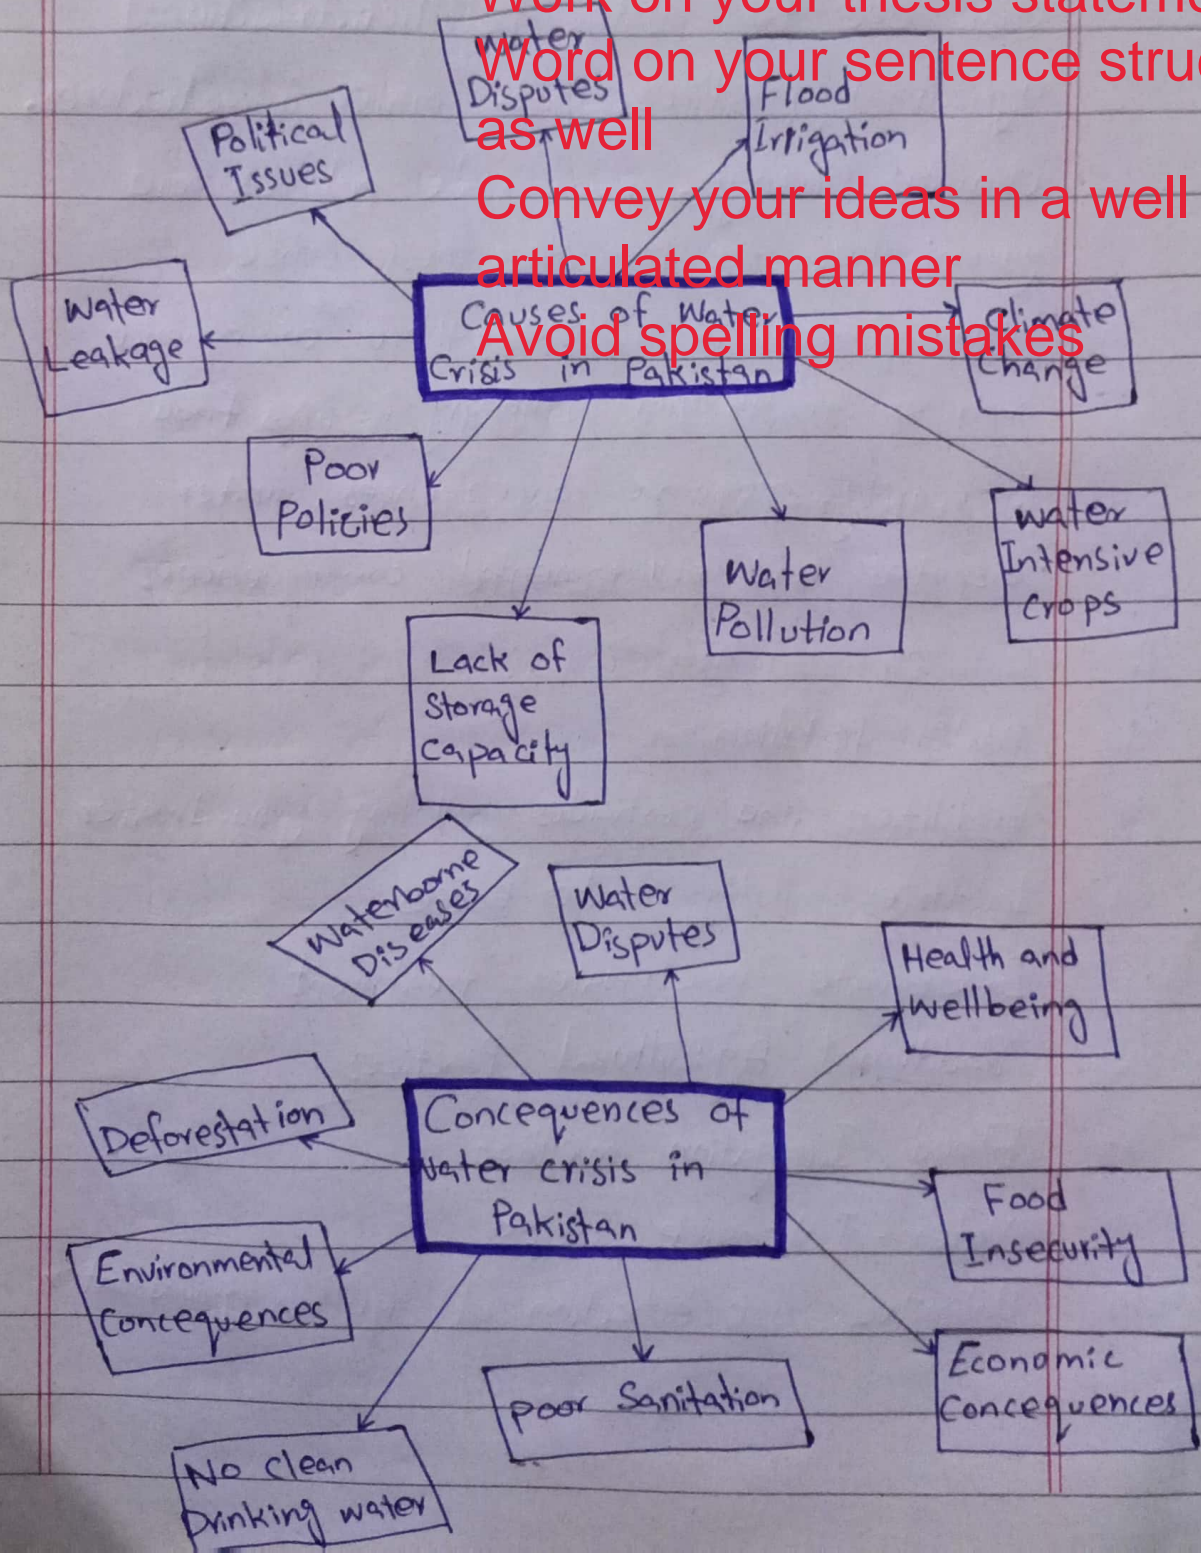 Work on your thesis
Word on your sentence
as well
Convey your ideas in a well
articulated manner
Avoid spelling mistakes
Water
Disputes
Flood
Irrigation
Political
Issues
Water
Leakage
Causes of Water
Crisis in Pakistan
Climate
Change
Poor
Policies
Water
Pollution
Water
Intensive
Crops
Lack of
Storage
Capacity
Waterborne
Diseases
Water
Disputes
Health and
Wellbeing
Deforestation
Concequences of
Water crisis in
Pakistan
Food
Insecurity
Environmental
Concequences
Poor Sanitation
Economic
Concequences
No clean
Drinking water